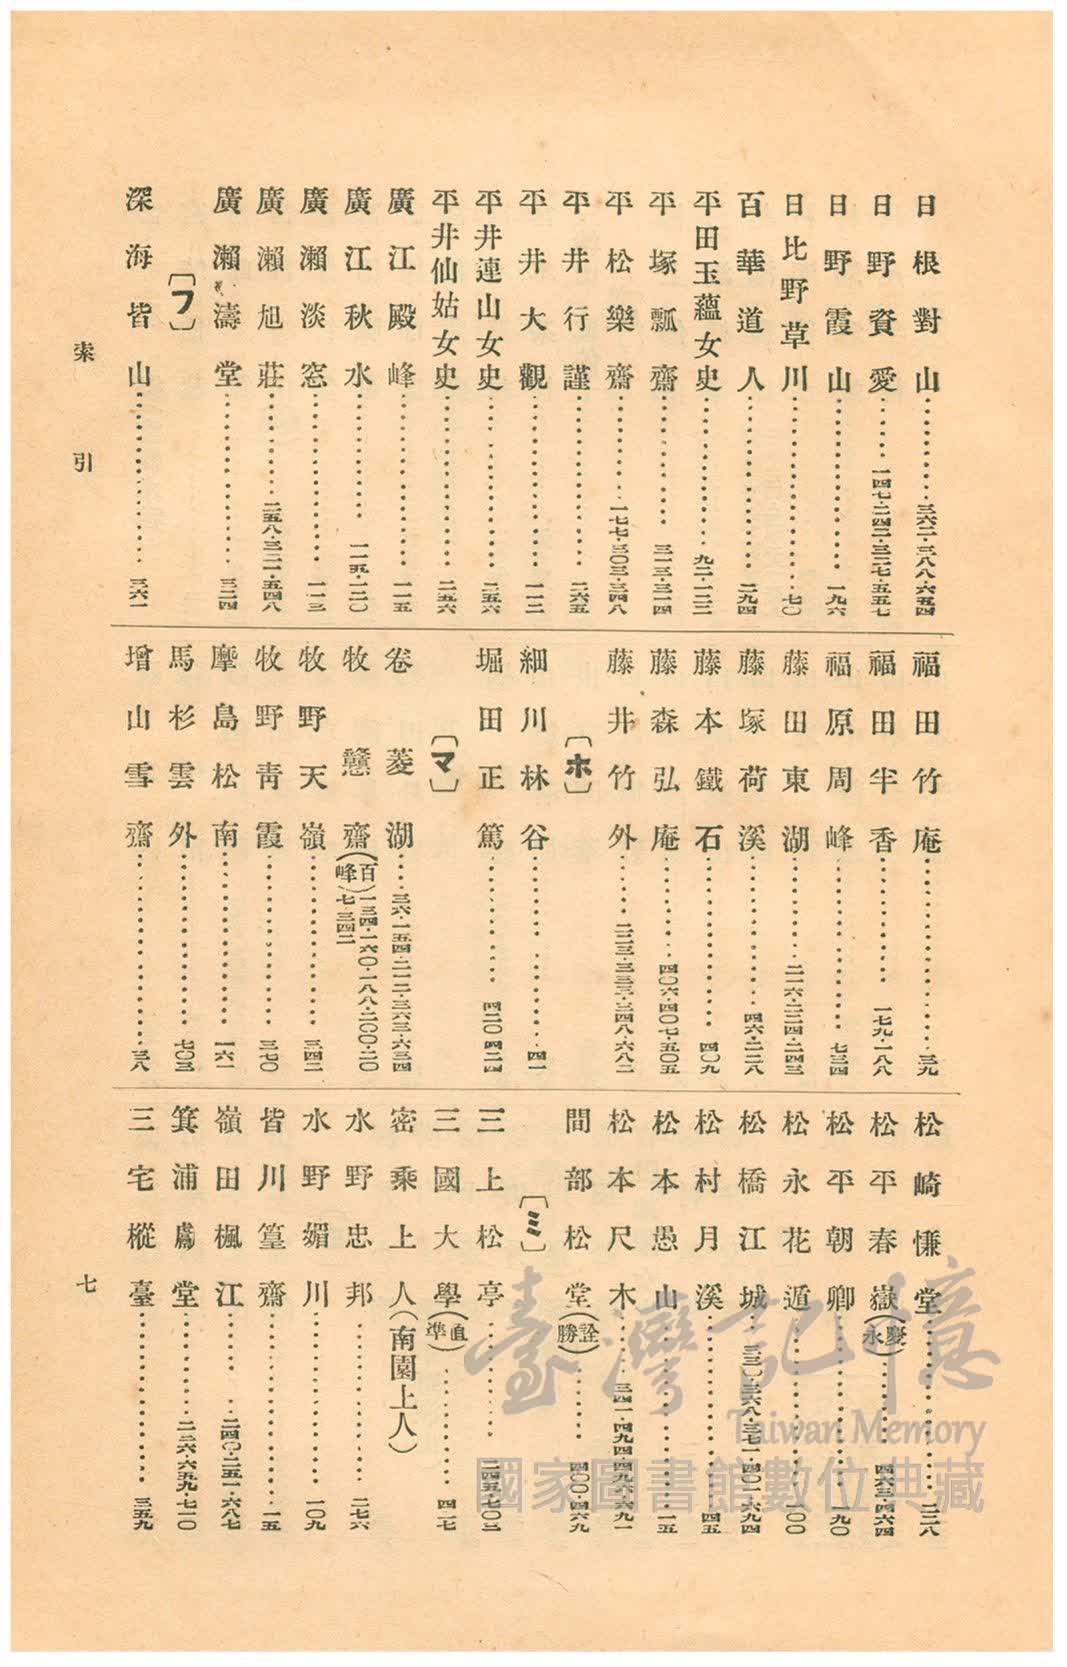 日根對山………三六二・三八八・六五四
日野資愛………一四七・二四二・三二七・五五七
日野霞山………一九六
日比野草川………七〇
百華道人………二九四
平田玉蘊女史………九二・一二二
平塚瓢齋………三一三・三一四
平松樂齋………一七七・三〇三・三四八
平井行謹………二六五
平井大觀………一一二
平井連山女史………二五六
平井仙姑女史………二五六
廣江殿峰………一一五
廣江秋水………一一五・一二〇
廣瀨淡窓………一一三
廣瀨旭莊………二五八・三二一・五四八
廣瀨濤堂………三二四
〔フ〕
深海皆山………三六一
福田竹庵………三九
福田半香………一七九・一八八
福原周峰………七三四
藤田東湖………二一六・二二四・二四三
藤塚荷溪………四六・二二八
藤本鐵石………四〇九
藤森弘庵………四〇六・四〇七・五〇五
藤井竹外………二二三・三三三・三四八・六八二
〔ホ〕
細川林谷………四一
堀田正篤………四二〇・四二四
〔マ〕
卷菱湖………三六・一五四・二一二・三六三・六三四
牧戇齋（百峰）一三四・一六〇・一八八・二〇〇・二〇七・三四二
牧野天嶺………三四二
牧野靑霞………三七〇
摩島松南………一六一
馬杉雲外………七〇三
增山雪齋………三八
松崎慊堂………二二八
松平春嶽（慶永）………四六三・四六四
松平朝卿………一九〇
松永花遁………一〇〇
松橋江城………三三〇・三六八・三七一・四〇一・六九四
松村月溪………四五
松本愚山………一五
松本尺木………三四一・四九四・四九六・六九一
間部松堂（詮勝）………四〇〇・四六九
〔ミ〕
三上松亭………二四五・七〇二
三國大學（直準）………四一七
密乘上人（南園上人）
水野忠邦………二七六
水野媚川………一〇九
皆川篁齋………一五
嶺田楓江………二四〇・二五一・六八七
箕浦鷹堂………二二六・六五九・七一〇
三宅樅臺………三五九
索引
七
臺灣記憶
Taiwan Memory
國家圖書館數位典藏